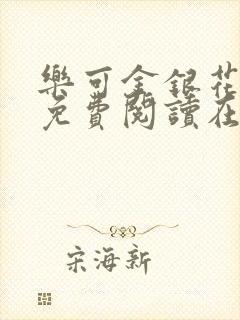 樂可金銀花
免費閱讀在
宋海新